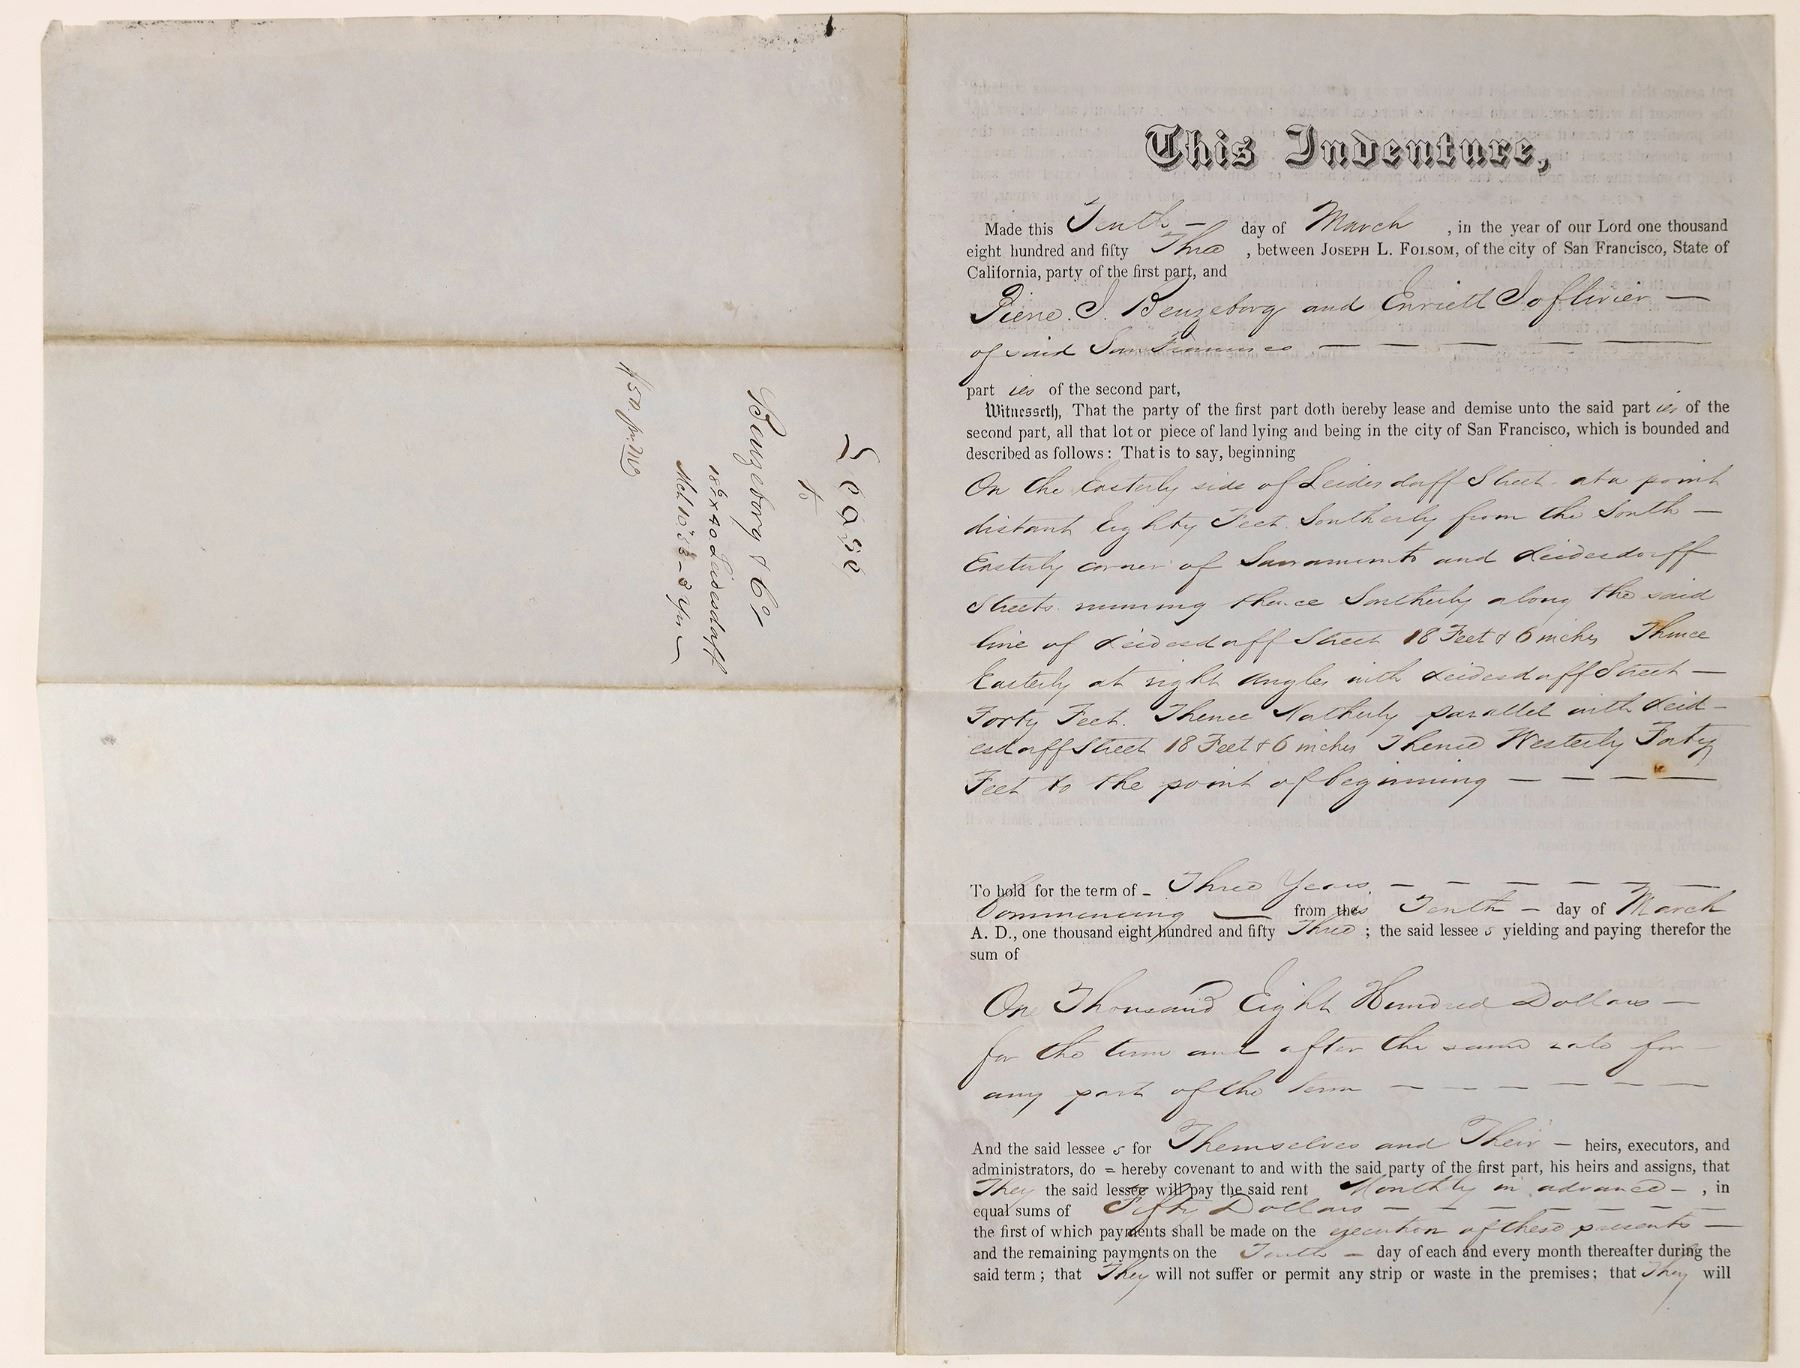 Lease
to
Benzeborg & Co
18 6/ x 40 Leidesdorff
Mch 10 '53 – 3 Yrs
$50 pr. mo
This Indenture,
Made this Tenth – day of March , in the year of our Lord one thousand
eight hundred and fifty Three , between JOSEPH L. FOLSOM, of the city of San Francisco, State of
California, party of the first part, and
J. Benzeborg and
of said San Francisco — — — — —
part ies of the second part,
Witnesseth, That the party of the first part doth hereby lease and demise unto the said part ies of the
second part, all that lot or piece of land lying and being in the city of San Francisco, which is bounded and
described as follows: That is to say, beginning
On the Easterly side of Leidesdorff Street at a point
distant Eighty Feet Southerly from the South –
Easterly corner of Sacramento and Leidesdorff
Streets running thence Southerly along the said
line of Leidesdorff Street 18 Feet & 6 inches Thence
Easterly at right angles with Leidesdorff Street –
Forty Feet. Thence Northerly parallel with Leid-
esdorff Street 18 Feet & 6 inches Thence Westerly Forty
Feet to the point of beginning – – – –
To hold for the term of – Three Years – – – – – –
Commencing — from this Tenth – day of March
A. D., one thousand eight hundred and fifty Three ; the said lessee s yielding and paying therefor the
sum of
On Thousand Eight Hundred Dollars –
for the term and after the same rate for –
any part of the term – – – – – –
And the said lessee s for Themselves and Their – heirs, executors, and
administrators, do = hereby covenant to and with the said party of the first part, his heirs and assigns, that
They the said lessee will pay the said rent Monthly in advance – , in
equal sums of Fifty Dollars – – – – – – –
the first of which payments shall be made on the execution of these presents –
and the remaining payments on the Tenth – day of each and every month thereafter during the
said term; that They will not suffer or permit any strip or waste in the premises; that They will